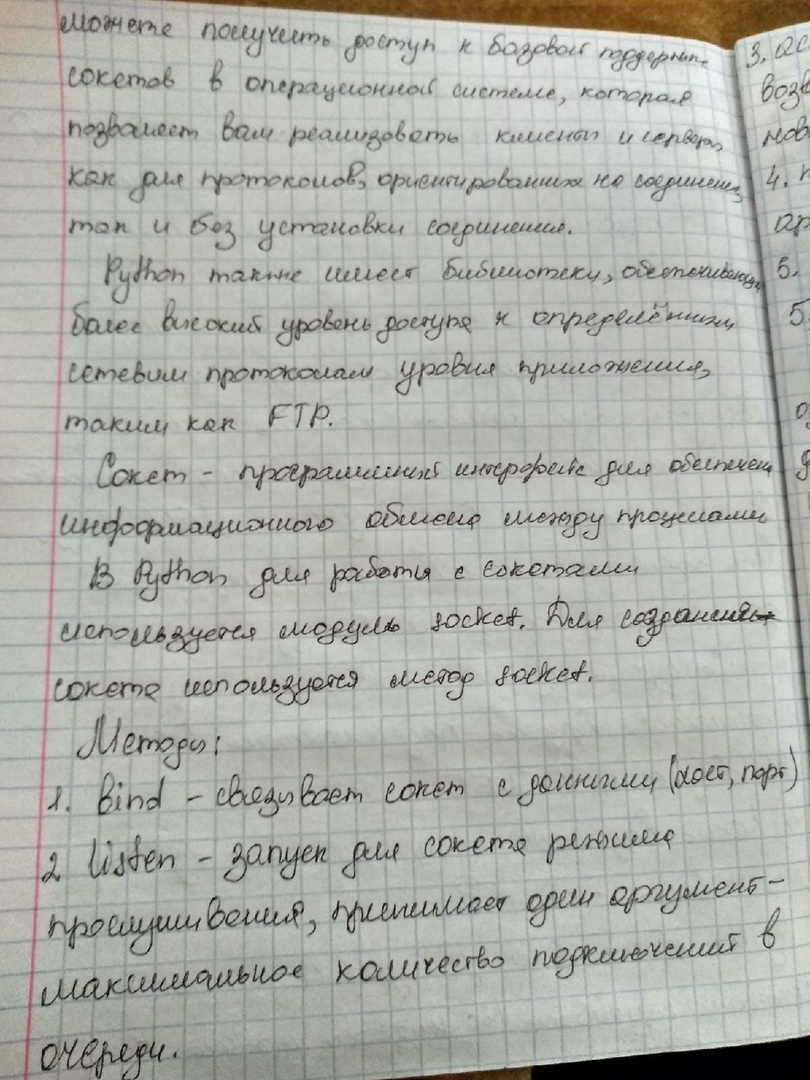 можете получить доступ к базовой поддержке
сокетов в операционной системе, которая
позволяет вам реализовать клиенты и серверы
как для протоколов, ориентированных на соединение,
так и без установки соединения.
Python также имеет библиотеки, обеспечивающие
более высокий уровень доступа к определённым
сетевым протоколам уровня приложения,
таким как FTP.
Сокет - программный интерфейс для обеспечен
информационного обмена между процессами
В Python для работы с сокетами
используется модуль socket. Для создания
сокета используется метод socket.
Методы:
1. bind - связывает сокет с данными (хост, порт)
2 listen - запуск для сокета режима
прослушивания, принимает один аргумент -
максимальное количество подключений в
очереди.
3.
возв
нов
4.
5.
5.